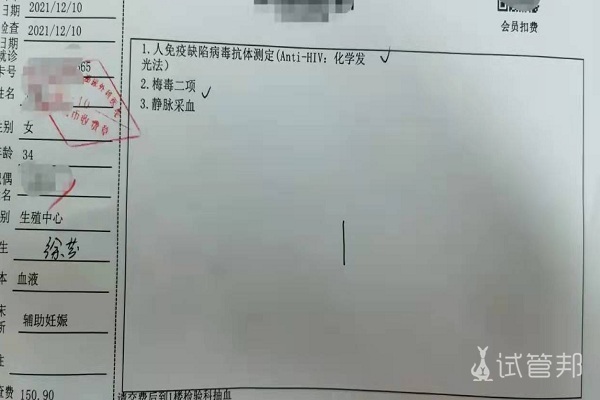 2021/12/10
日期
检查 2021/12/10
日期
就诊
卡号 565
姓名
性别 女
年龄 34
配偶
姓名
别 生殖中心
生
本 血液
末
断 辅助妊娠
注
查费 150.90
会员扣费
1.人免疫缺陷病毒抗体测定(Anti-HIV：化学发
光法)
2.梅毒二项
3.静脉采血
请交费后到1楼检验科抽血
试管邦